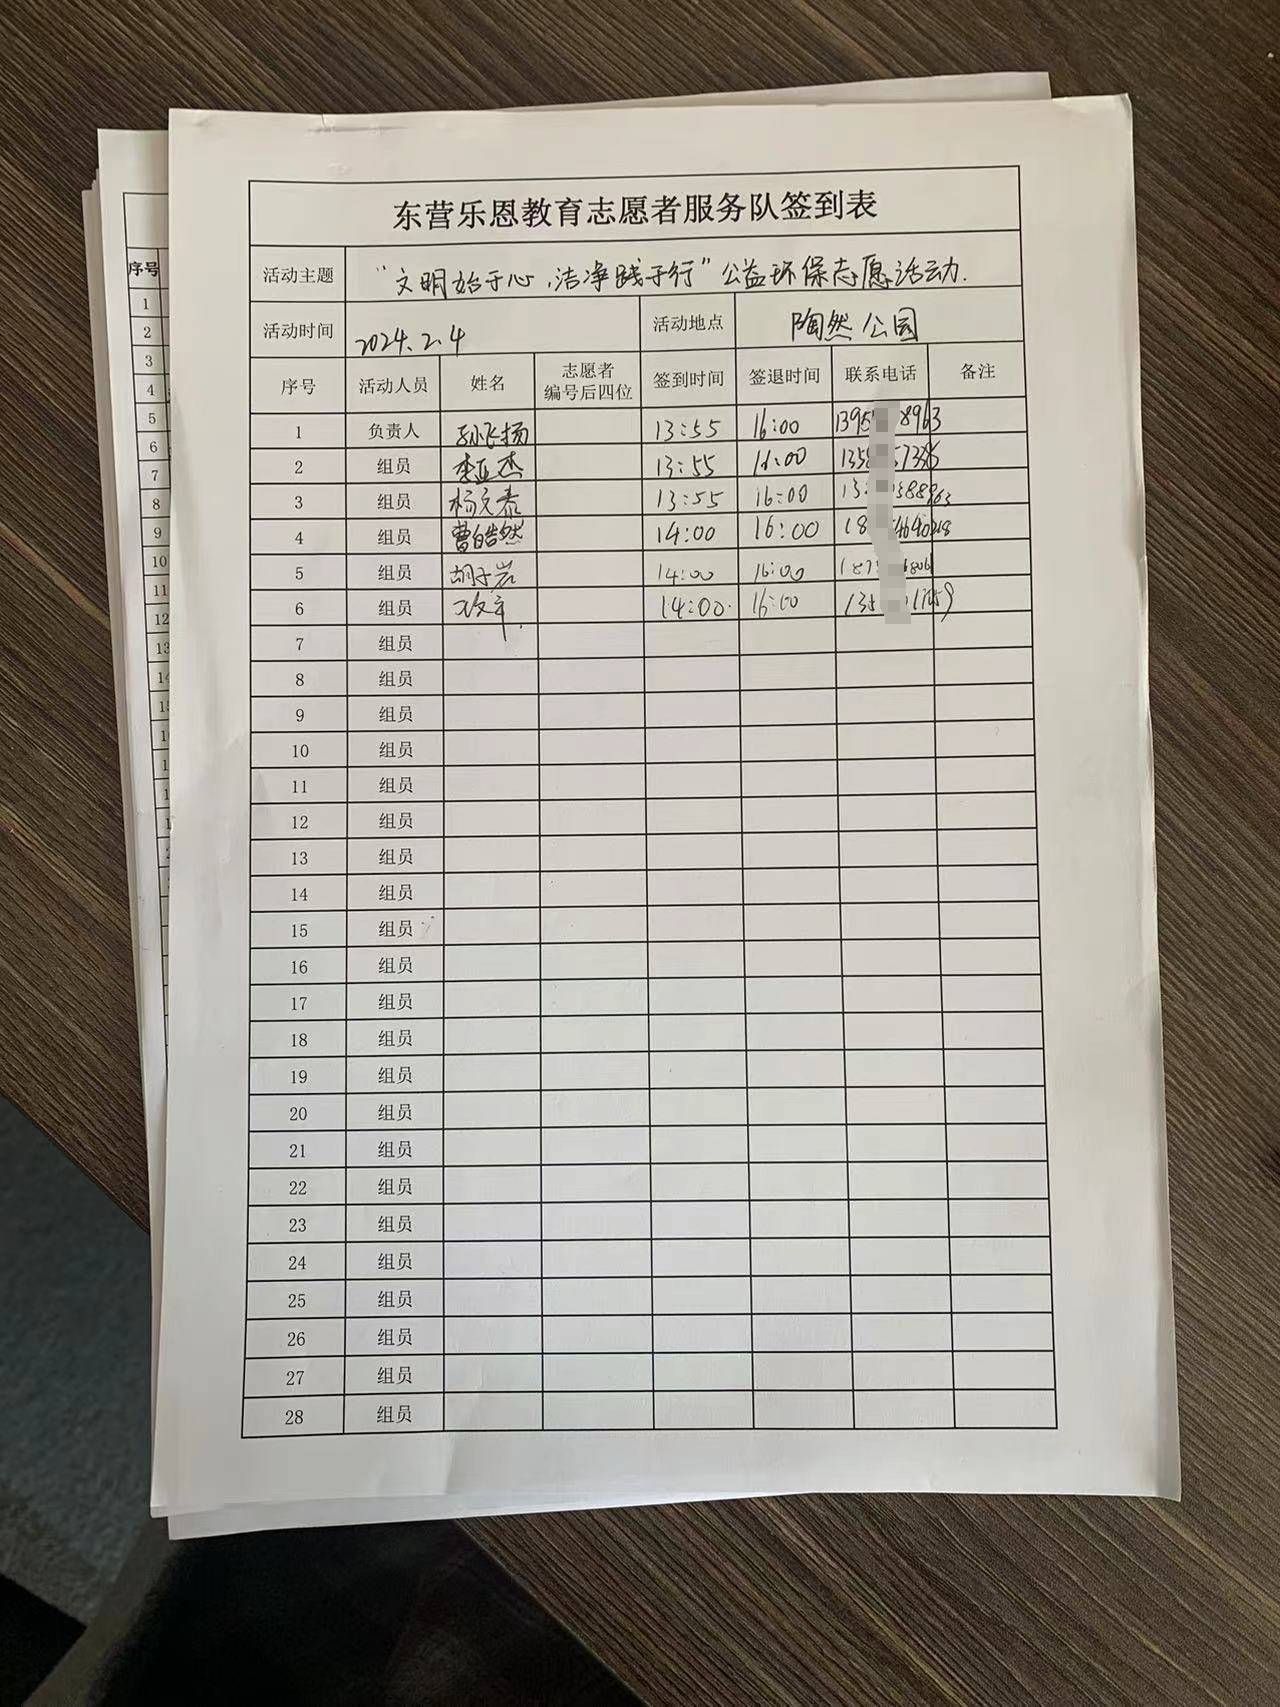 东营乐恩教育志愿者服务队签到表
活动主题 “文明始于心，洁净践于行”公益环保志愿活动.
活动时间 2024.2.4 活动地点 陶然公园
序号 活动人员 姓名 志愿者编号后四位 签到时间 签退时间 联系电话 备注
1 负责人 孙飞扬 13:55 16:00 1395 8963
2 组员 李亚杰 13:55 16:00
3 组员 杨文泰 13:55 16:00
4 组员 曹皓然 14:00 16:00
5 组员 胡子岩 14:00 16:00
6 组员 14:00. 16:00
7 组员
8 组员
9 组员
10 组员
11 组员
12 组员
13 组员
14 组员
15 组员
16 组员
17 组员
18 组员
19 组员
20 组员
21 组员
22 组员
23 组员
24 组员
25 组员
26 组员
27 组员
28 组员
序号
1
2
3
4
5
6
7
8
9
10
11
12
13